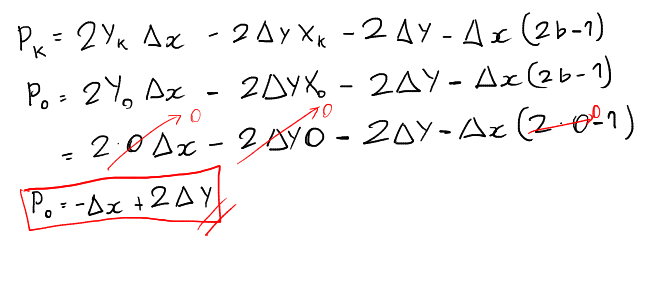 P_k = 2Y_k Δx - 2ΔY X_k - 2ΔY - Δx(2b-1)
P_0 = 2Y_0 Δx - 2ΔY X_0 - 2ΔY - Δx(2b-1)
= 2·0 Δx 0 - 2ΔY0 0 - 2ΔY - Δx(2·0 0 -1)
P_0 = -Δx + 2ΔY